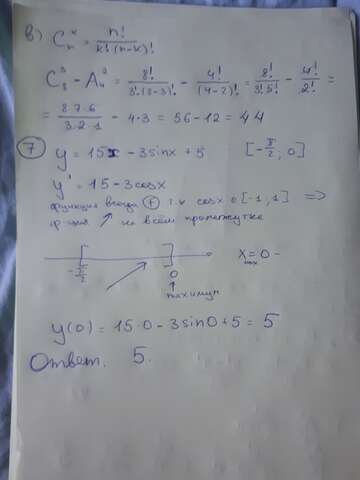 в) Cₙᵏ = n! / k!(n-k)!
C₈³ - A₄² = 8! / 3!·(8-3)! - 4! / (4-2)! = 8! / 3!5! - 4! / 2! =
= 8·7·6 / 3·2·1 - 4·3 = 56-12 = 44
7 y = 15x - 3sinx + 5 [-π/2, 0]
y' = 15 - 3cosx
функция всегда ⊕ т.к cosx ∈ [-1, 1] ⇒
ф-ция ↗ на всём промежутке
-π/2 0 x max = 0 -
максимум
y(0) = 15·0 - 3sin0 + 5 = 5
Ответ. 5.